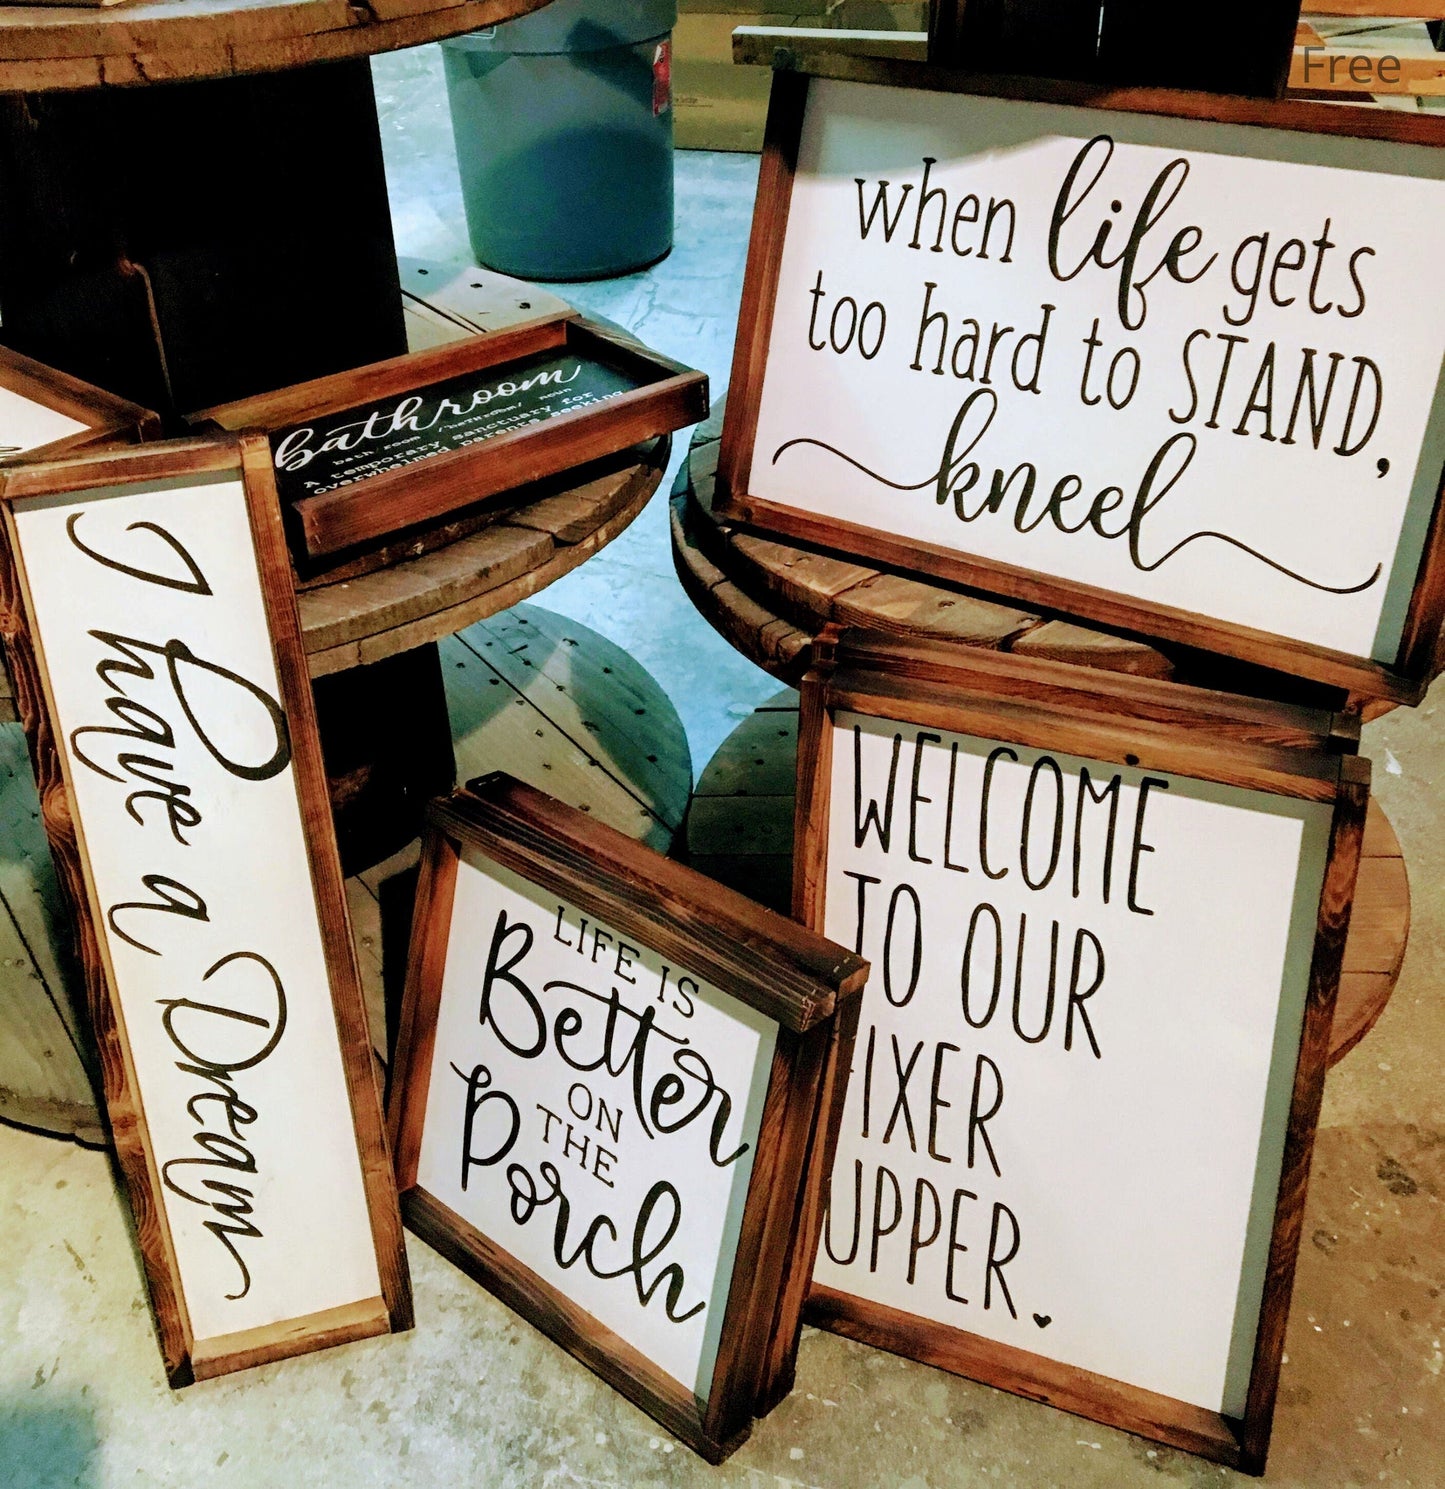 Free
when life gets
too hard to STAND,
kneel
bathroom
bath room /bathroom/ noun
A temporary sanctuary for
overwhelmed parents seeking
I have a Dream
LIFE IS
Better
ON
THE
Porch
WELCOME
TO OUR
FIXER
UPPER.